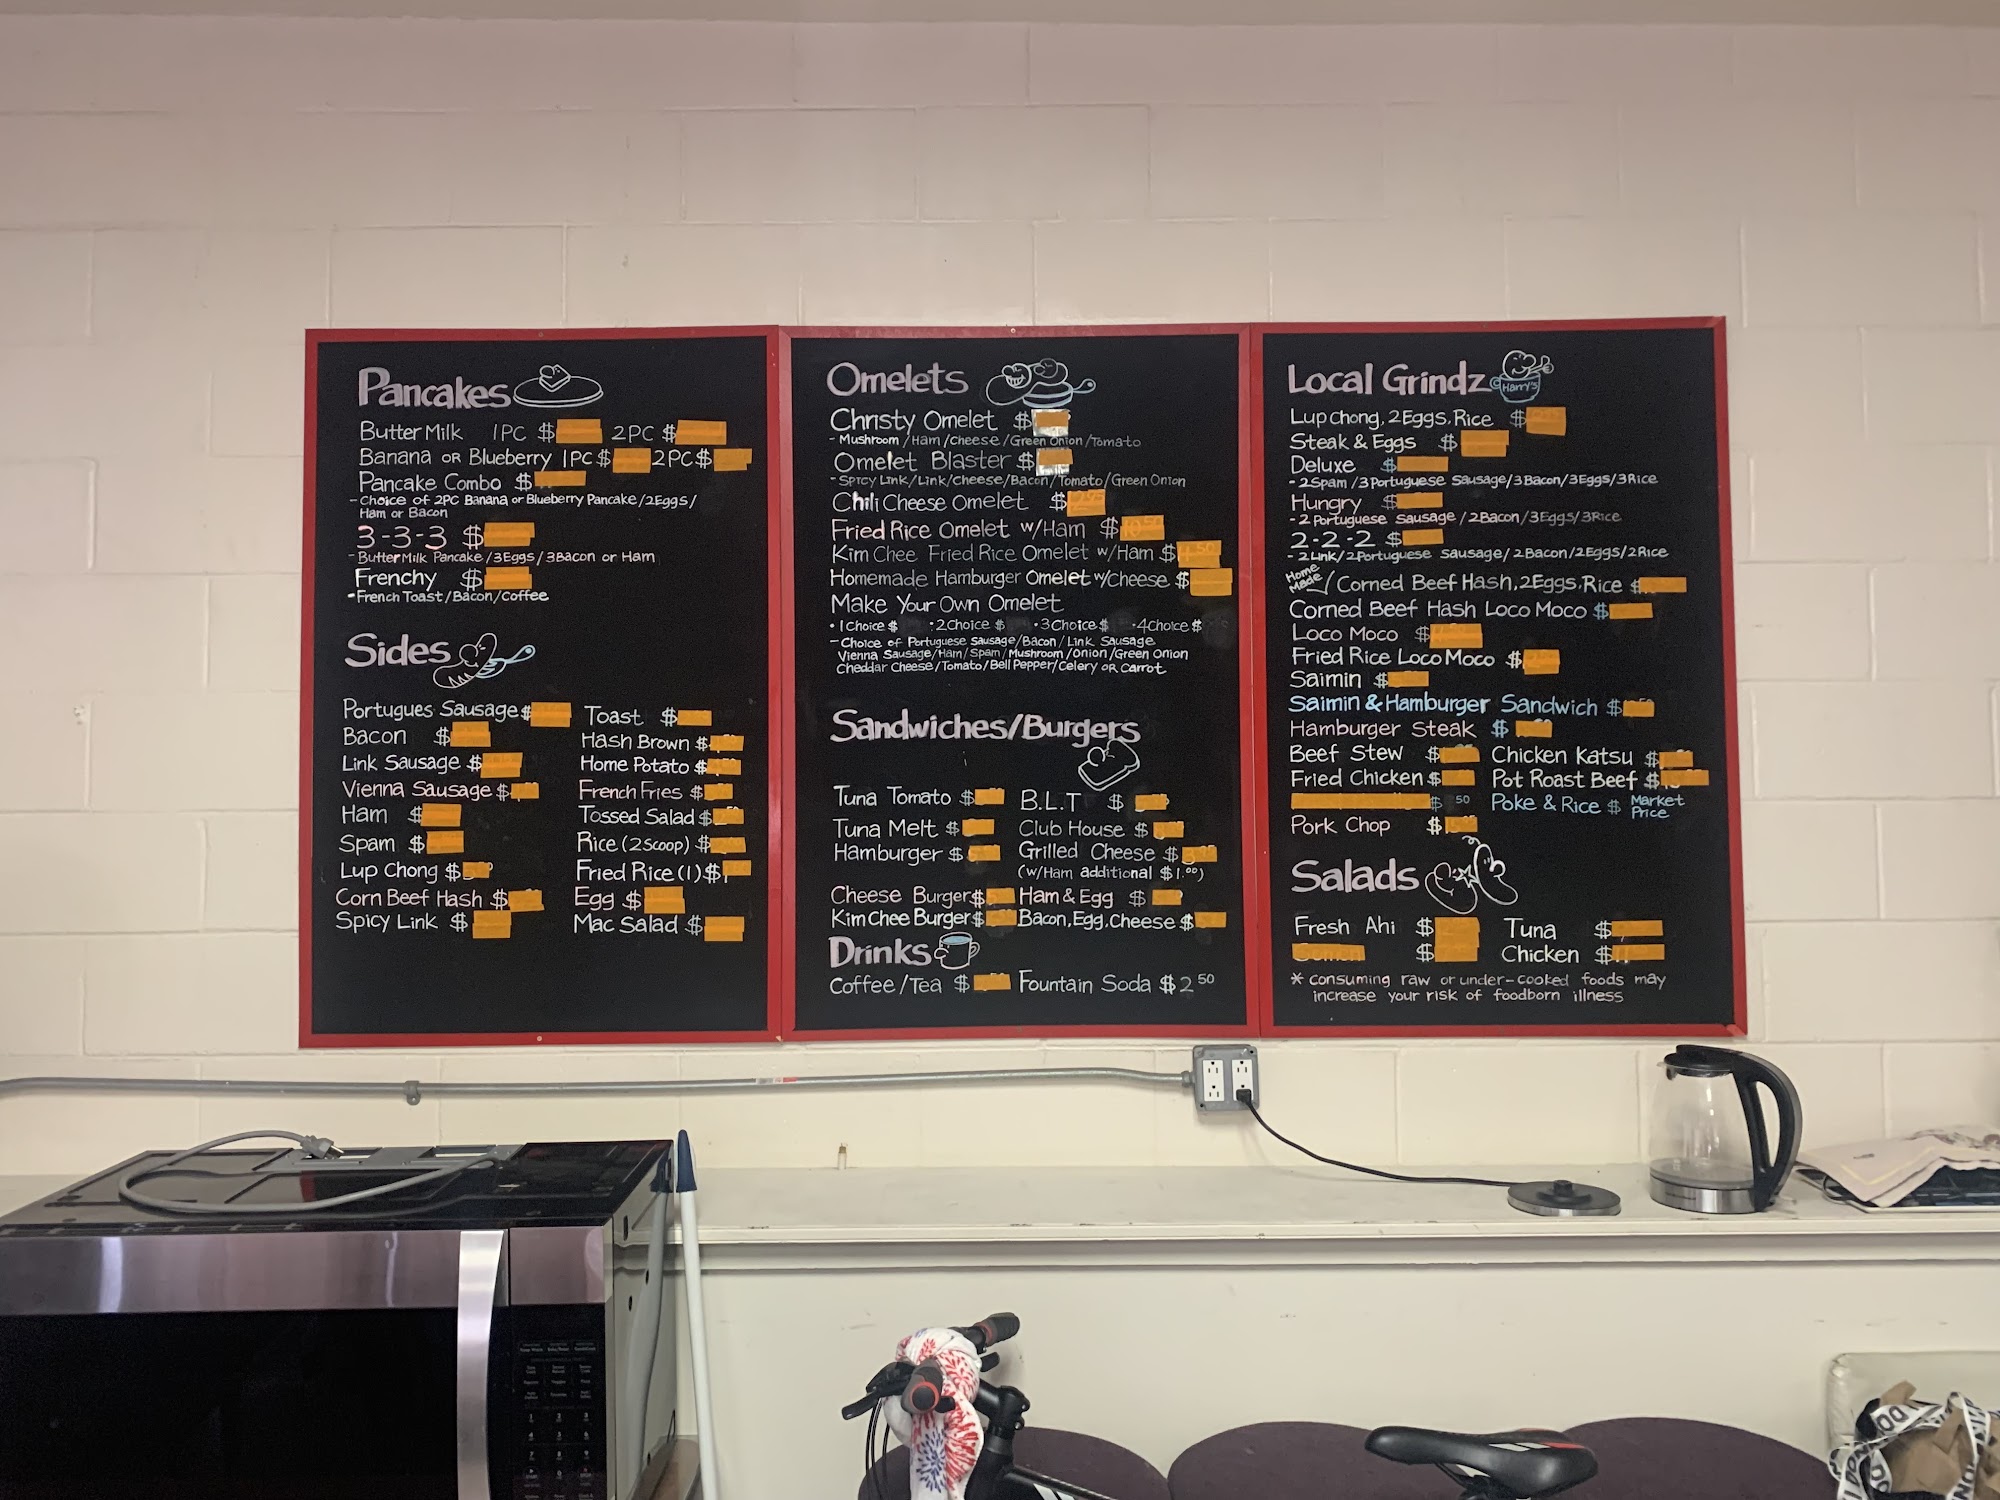 Pancakes
Butter Milk 1PC $ 2PC $
Banana OR Blueberry 1PC $ 2PC $
Pancake Combo $
- Choice of 2PC Banana or Blueberry Pancake/2Eggs/
Ham or Bacon
3-3-3 $
- Butter Milk Pancake/3Eggs/3Bacon or Ham
Frenchy $
- French Toast/Bacon/Coffee
Sides
Portugues Sausage $
Bacon $
Link Sausage $
Vienna Sausage $
Ham $
Spam $
Lup Chong $
Corn Beef Hash $
Spicy Link $
Toast $
Hash Brown $
Home Potato $
French Fries $
Tossed Salad $
Rice (2 scoop) $
Fried Rice (1) $
Egg $
Mac Salad $
Omelets
Christy Omelet $
- Mushroom/Ham/Cheese/Green Onion/Tomato
Omelet Blaster $
- Spicy Link/Link/Cheese/Bacon/Tomato/Green Onion
Chili Cheese Omelet $
Fried Rice Omelet w/Ham $
Kim Chee Fried Rice Omelet w/Ham $
Homemade Hamburger Omelet w/Cheese $
Make Your Own Omelet
• 1Choice $ • 2Choice $ • 3Choice $ • 4Choice $
- Choice of Portuguese Sausage/Bacon/Link Sausage
Vienna Sausage/Ham/Spam/Mushroom/Onion/Green Onion
Cheddar Cheese/Tomato/Bell Pepper/Celery OR Carrot
Sandwiches/Burgers
Tuna Tomato $
Tuna Melt $
Hamburger $
Cheese Burger $
Kim Chee Burger $
B.L.T $
Club House $
Grilled Cheese $
(w/Ham additional $1.00)
Ham & Egg $
Bacon, Egg, Cheese $
Drinks
Coffee/Tea $ Fountain Soda $2 50
Local Grindz
Harry's
Lup Chong, 2Eggs, Rice $
Steak & Eggs $
Deluxe $
- 2Spam/3Portuguese Sausage/3Bacon/3Eggs/3Rice
Hungry $
- 2 Portuguese Sausage/2Bacon/3Eggs/3Rice
2-2-2 $
- 2Link/2Portuguese Sausage/2Bacon/2Eggs/2Rice
Home Made / Corned Beef Hash, 2Eggs, Rice $
Corned Beef Hash Loco Moco $
Loco Moco $
Fried Rice Loco Moco $
Saimin $
Saimin & Hamburger Sandwich $
Hamburger Steak $
Beef Stew $ Chicken Katsu $
Fried Chicken $ Pot Roast Beef $
$ 50 Poke & Rice $ Market Price
Pork Chop $
Salads
Fresh Ahi $ Tuna $
$ Chicken $
* consuming raw or under-cooked foods may
increase your risk of foodborn illness